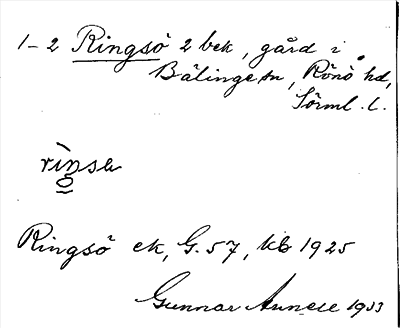 1-2 Ringsö 2 bek, gård i
Bälinge sn, Rönö hd,
Sörml. l.
Ringsö ek, G. 57, kb 1925
Gunnar 1933